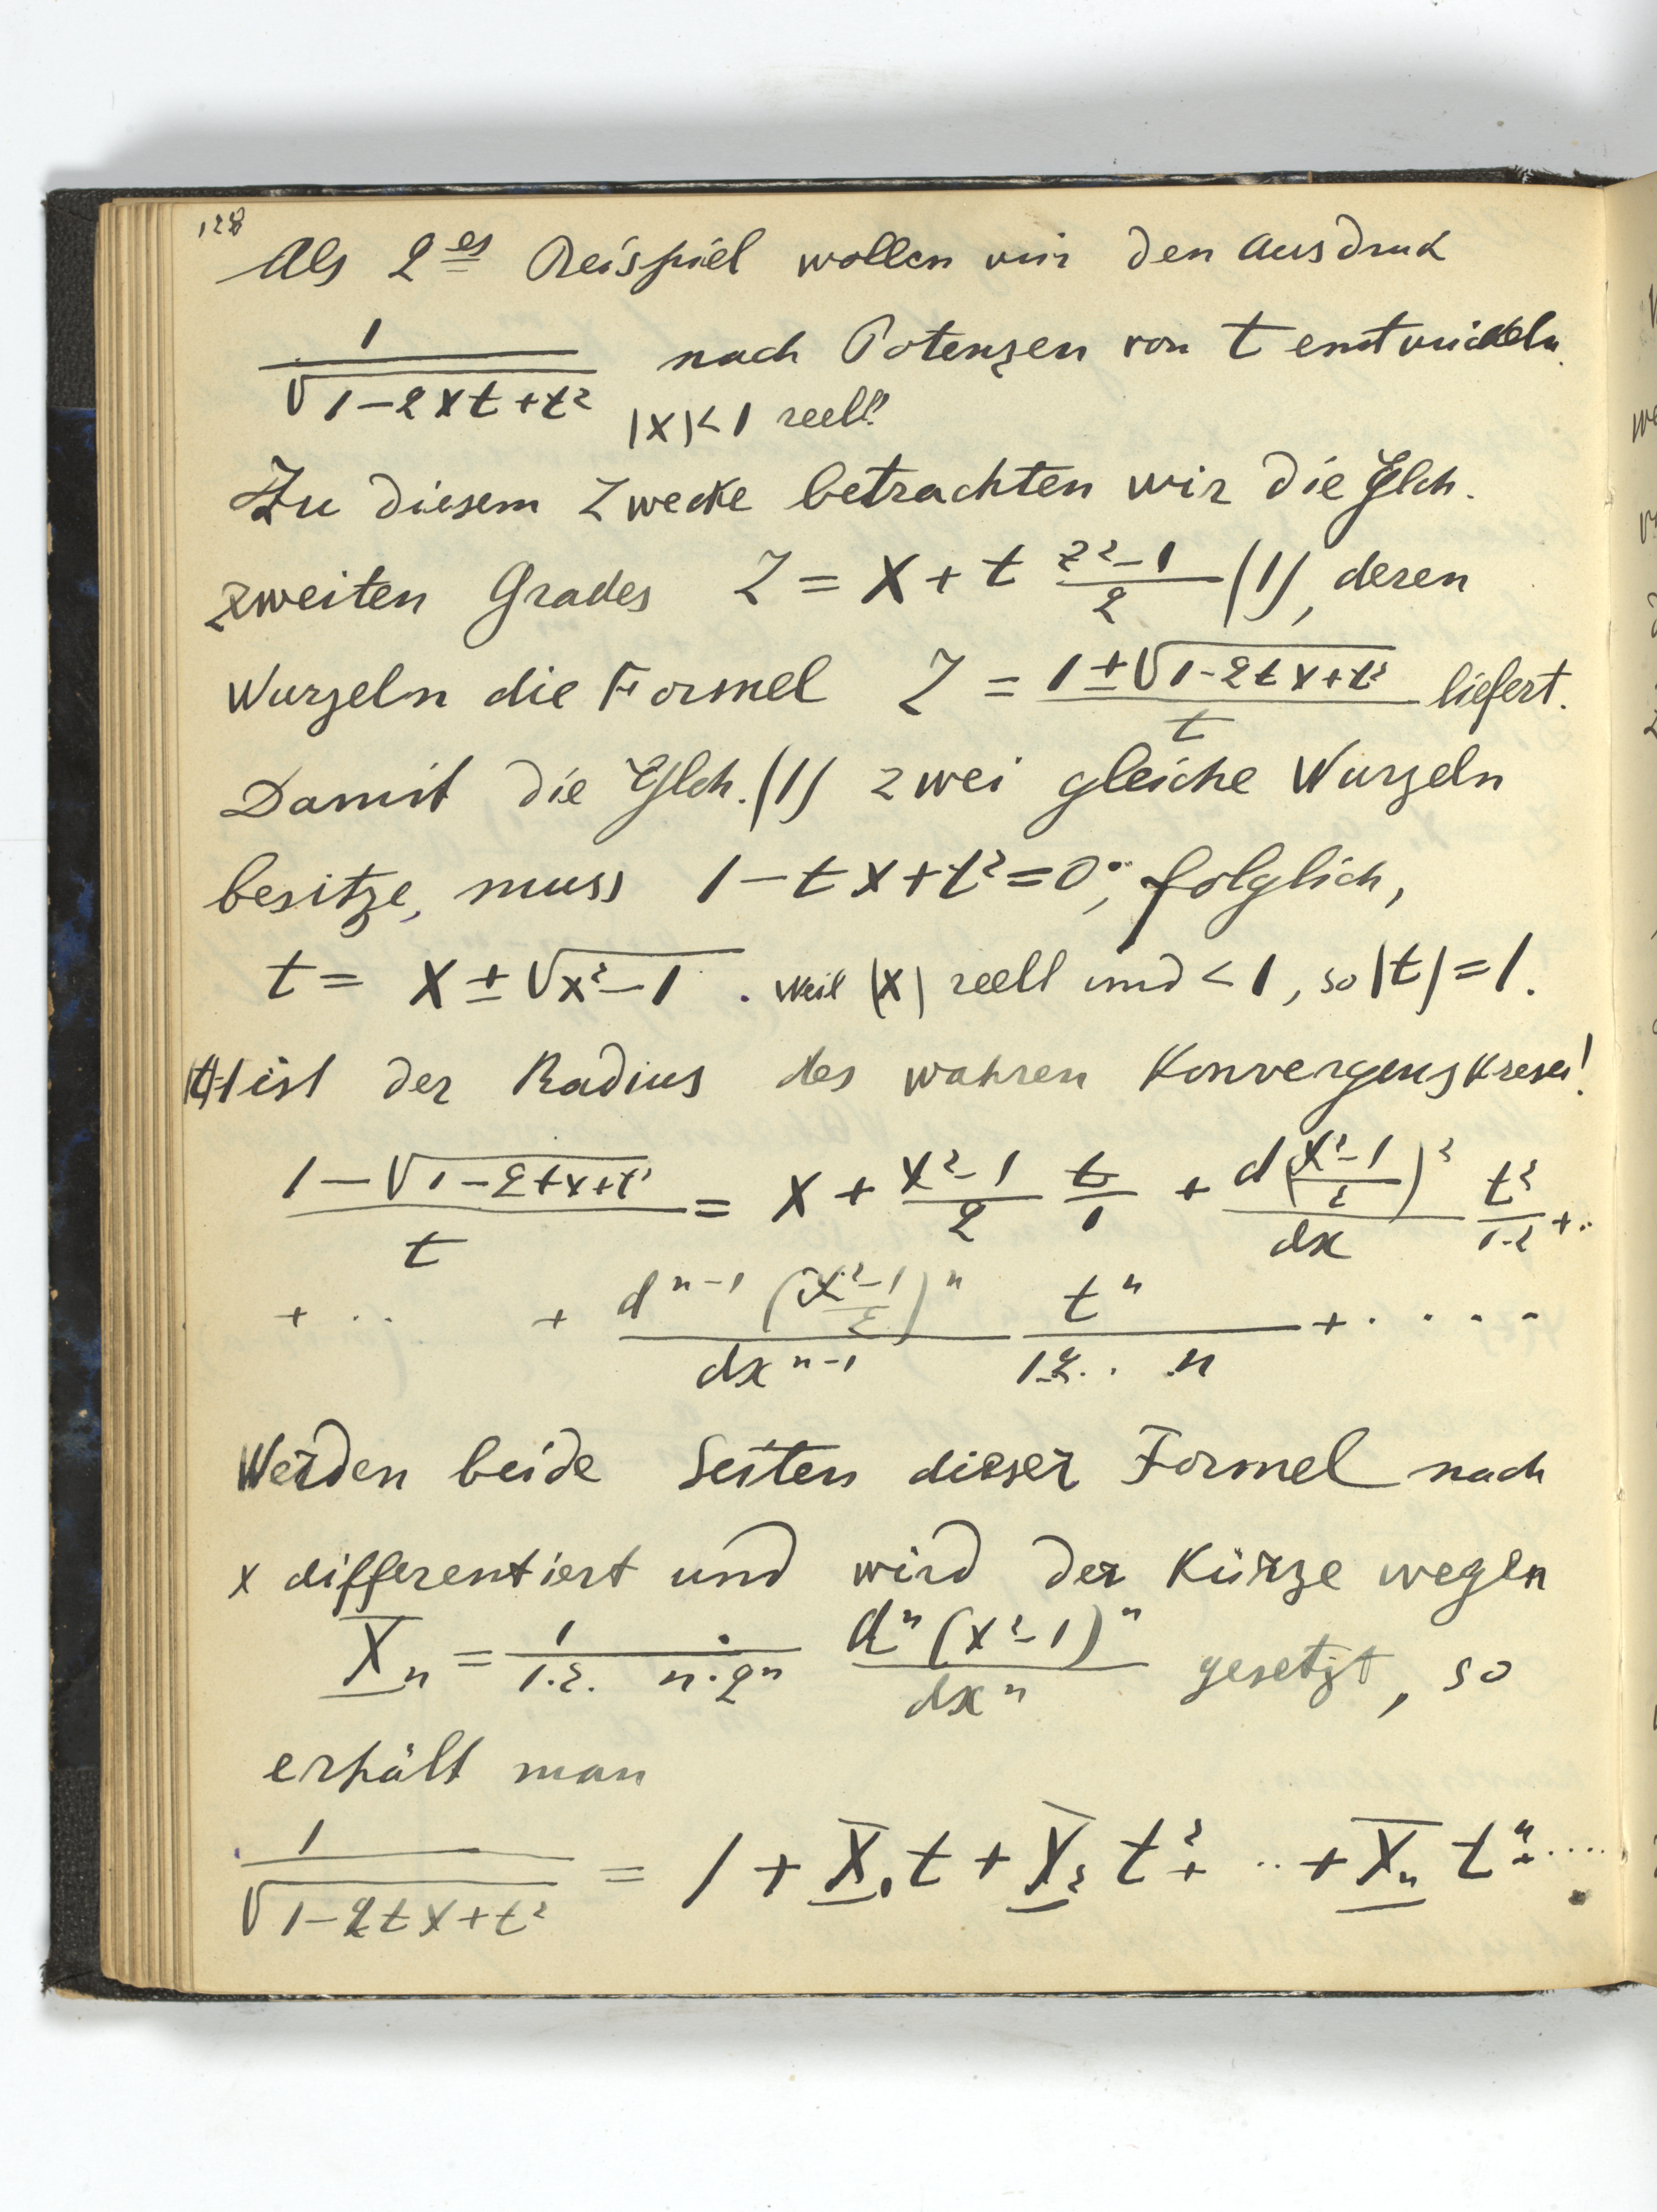 128
Als 2es Beispiel wollen wir den Ausdruck
1/√(1-2xt+t²) nach Potenzen von t entwickeln.
|x|<1 reell!
Zu diesem Zwecke betrachten wir die Glch.
zweiten Grades Z = x + t (z²-1)/2 (1), deren
Wurzeln die Formel Z = (1±√(1-2tx+t²))/t liefert.
Damit die Glch. (1) zwei gleiche Wurzeln
besitze, muss 1-tx+t²=0; folglich,
t = x ± √(x²-1). Weil |x| reell und <1, so |t|=1.
|t|=1 ist der Radius des wahren Konvergenskreses!
(1-√(1-2tx+t²))/t = x + (x²-1)/2 t/1 + d((x²-1)/2)²/dx t²/1·2 + ..
+ .. + d^(n-1)((x²-1)/2)^n/dx^(n-1) t^n/1.2.. n + · · · ·
Werden beide Seiten dieser Formel nach
x differentiert und wird der Kürze wegen
X_n = 1/(1.2. n·2^n) d^n(x²-1)^n/dx^n gesetzt, so
erhält man
1/√(1-2tx+t²) = 1 + X_1 t + X_2 t² + ·· + X_n t^n + ....